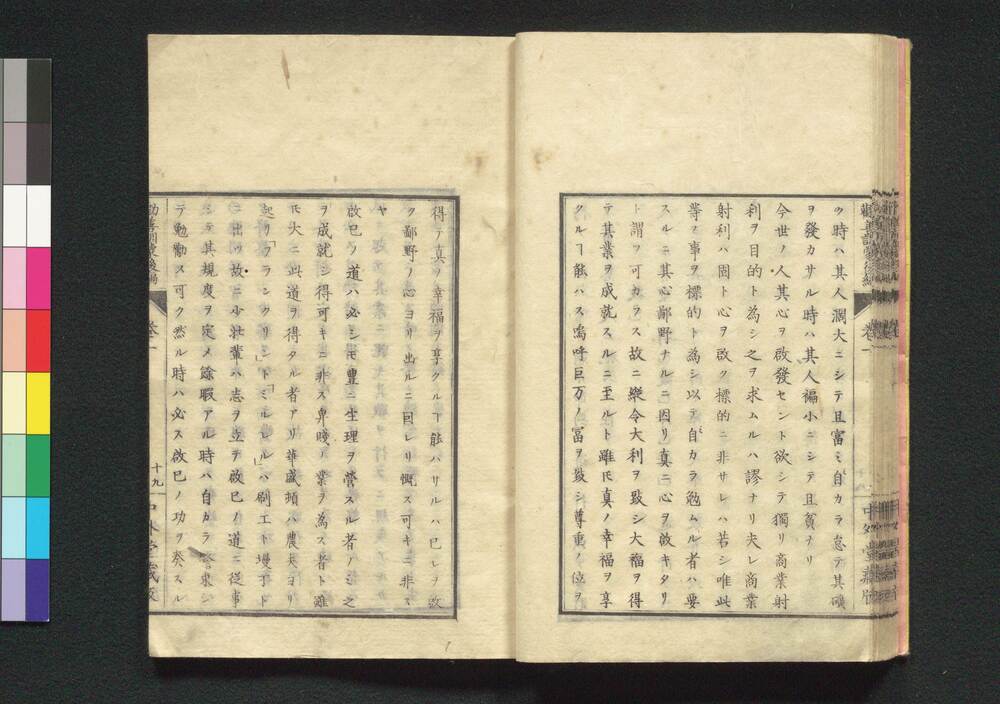 ゥ時ハ其人濶大ニシテ且富ミ自カラ怠テ其礦
ヲ發カサル時ハ其人褊小ニシテ且貧ナリ
今世ノ人其心ヲ啟發セント欲シテ獨リ商業射
利ヲ目的ト為シ之ヲ求ムルハ謬ナリ夫レ商業
射利ハ固ト心ヲ啟ク標的ニ非サレハ若シ唯此
等ノ事ヲ標的ト為シ以テ自カラ勉ムル者ハ要
スルニ其心鄙野ナルニ因リ真ニ心ヲ啟キタリ
ト謂フ可カラス故ニ縱令大利ヲ致シ大福ヲ得
テ其業ヲ成就スルニ至ルト雖𪜈真ノ幸福ヲ享
クルヿ能ハス嗚呼巨万ノ冨ヲ致シ尊重ノ位ヲ
得テ真ノ幸福ヲ享クルヿ能ハサルハ已レヲ啟
ク鄙野ノ心ヨリ出ルニ因レリ慨ス可キニ非ス
ヤ
啟已ノ道ハ必シモ豊ニ生理ヲ營スル者ノミ之
ヲ成就シ得可キニ非ス卑賤ノ業ヲ為ス者ト雖
𪜈大ニ此道ヲ得タル者アリ華盛頓ハ農夫ヨリ
起リ「フランクリン」ト「ミルレル」ハ刷工ト墁丁ト
ニ出ツ故ニ少壮輩ハ志ヲ立テ啟已ノ道ニ從事
シテ其規度ヲ定メ餘暇アル時ハ自カラ檢束シ
テ勉勵ス可ク然ル時ハ必ス啟已ノ功ヲ奏スル
勸善訓蒙後編
卷一
十九